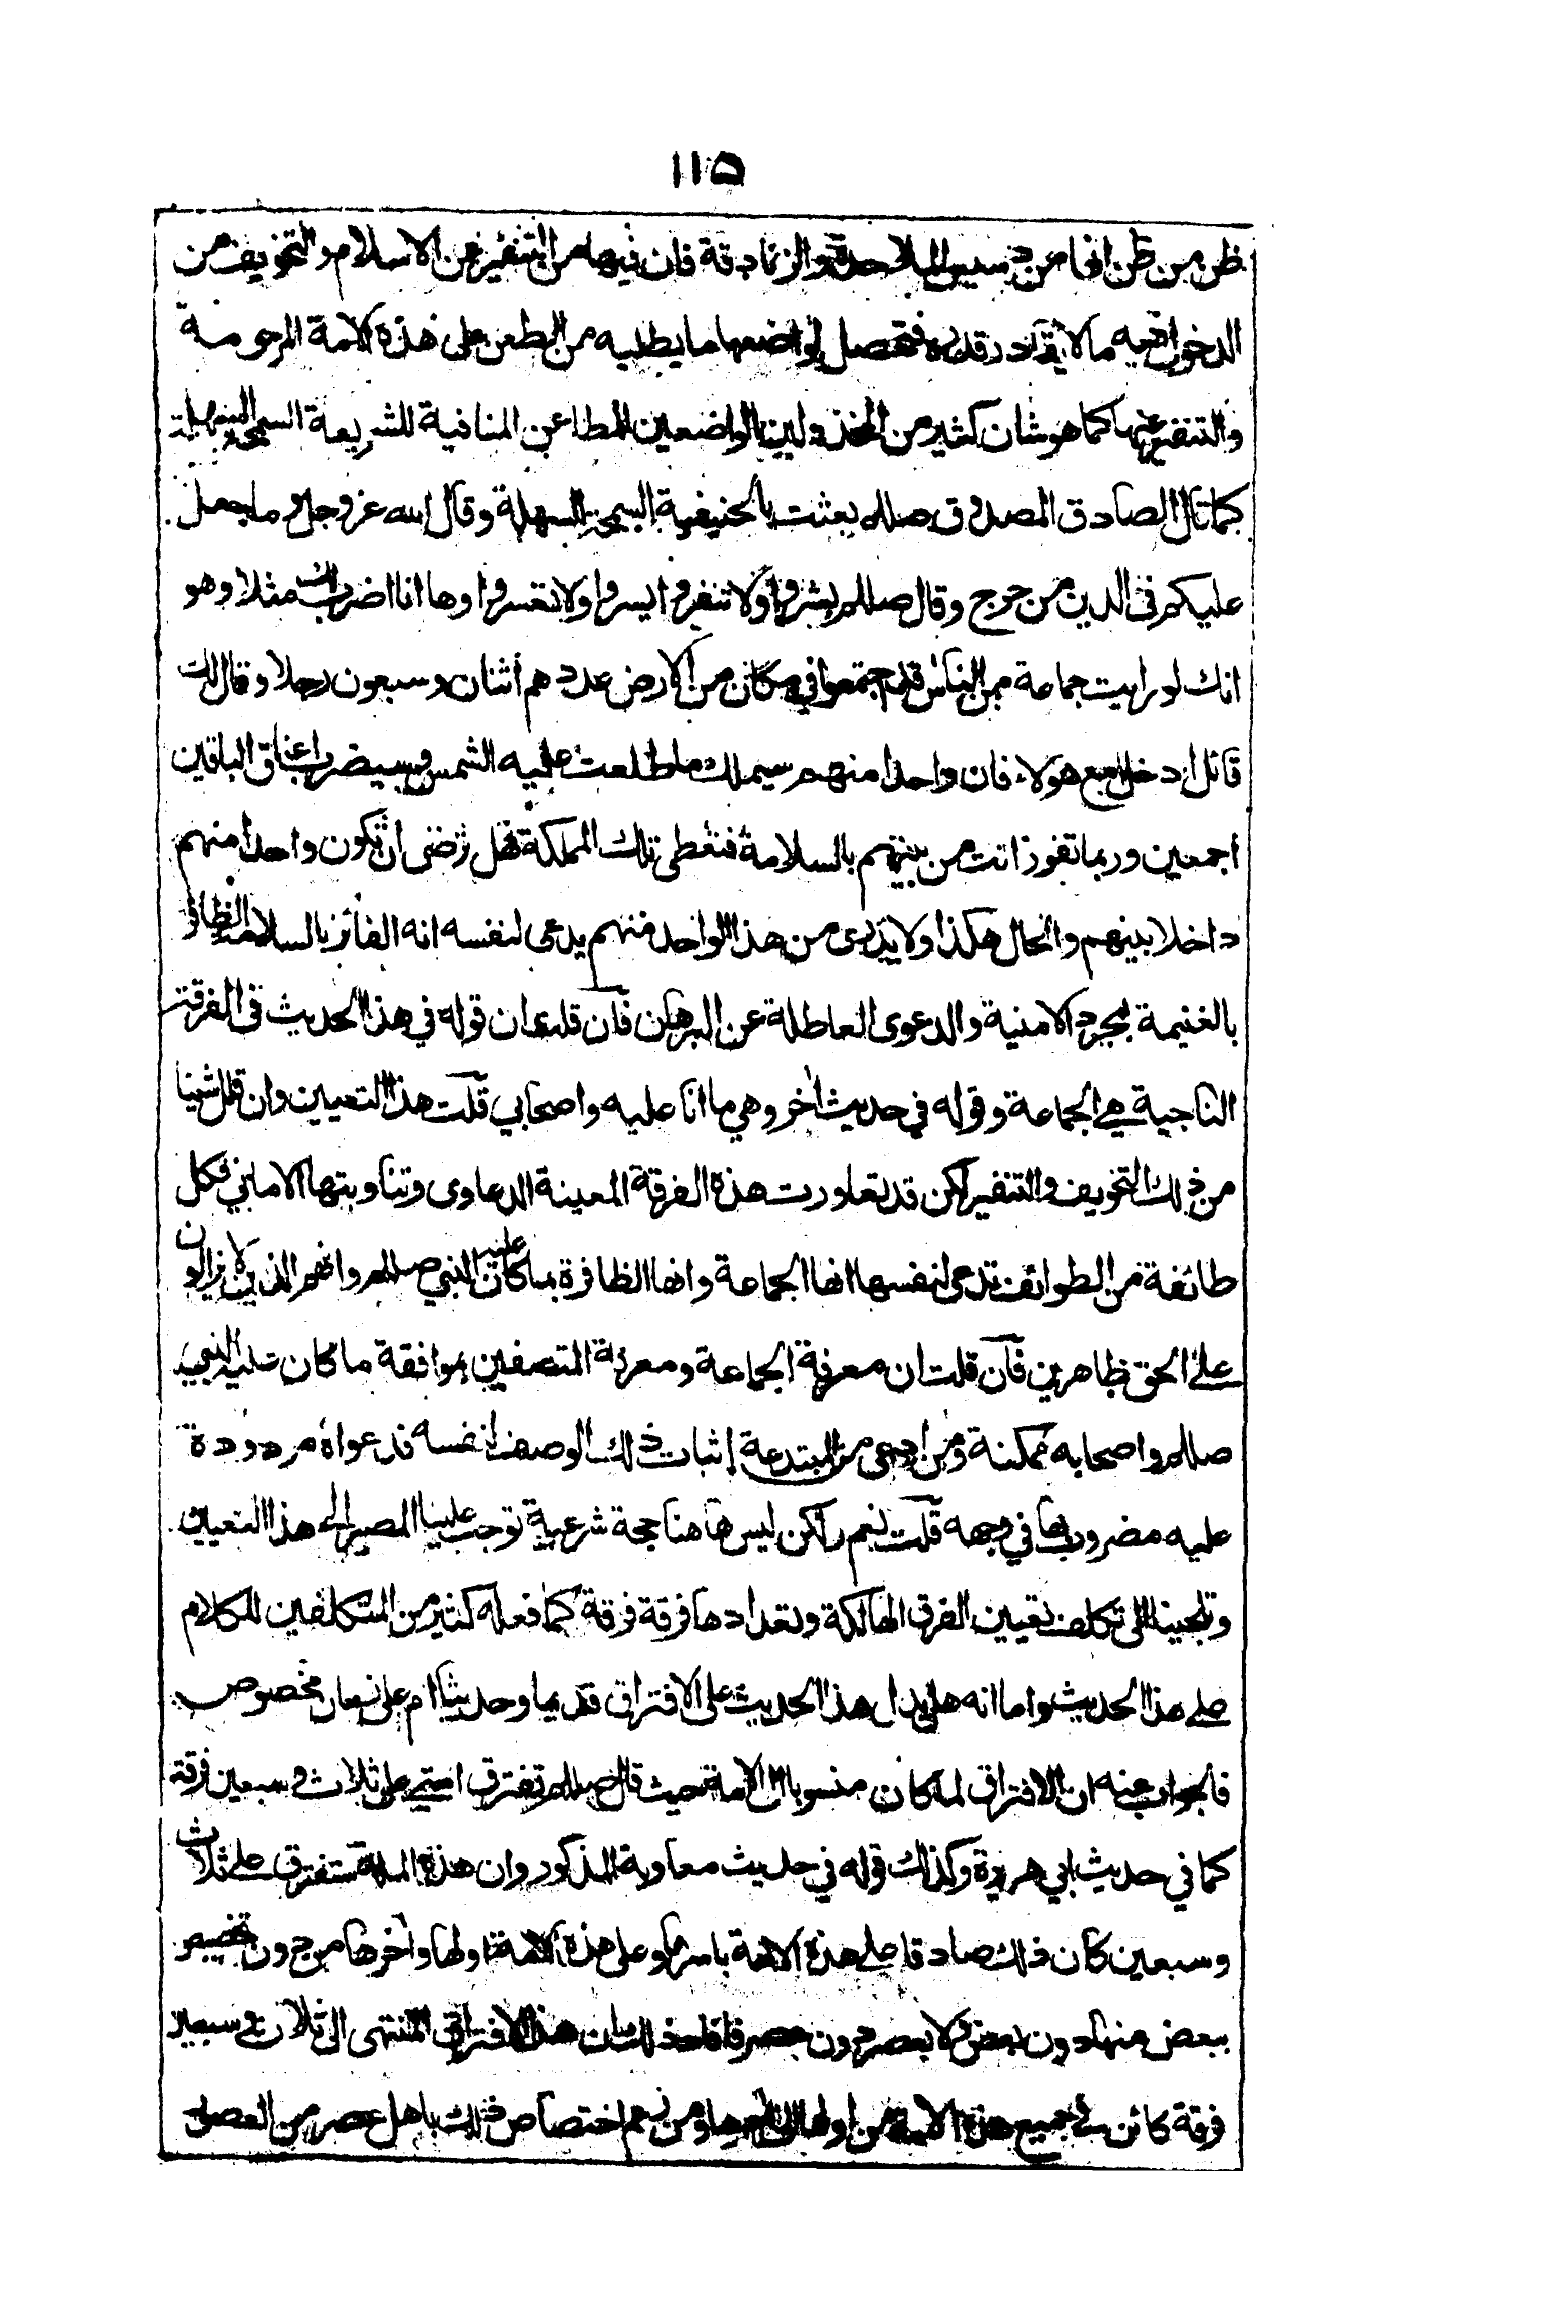 ١١٥
ظن من ظن انها من دسيس الملاحدة والزنادقة فان فيها من التنفير عن الاسلام والتخويف من
الدخول فيه ما لا يقادر قدره فتحصل لواضعها ما يطلبه من الطعن على هذه الامة المرحومة
والتنفير عنها كما هو شان كثير من المخذولين الواضعين المطاعن المنافية للشريعة السمحة السهلة
كما قال الصادق المصدوق صللم بعثت بالحنيفية السمحة السهلة وقال الله عز وجل وما جعل
عليكم في الدين من حرج وقال صللم بشروا ولا تنفروا يسروا ولا تعسروا وها انا اضرب لك مثلا وهو
انك لو رايت جماعة من الناس قد اجتمعوا في مكان من الارض عددهم اثنان وسبعون رجلا وقال لك
قائل ادخل مع هولاء فان واحدا منهم سيملك ما طلعت عليه الشمس وسيضرب اعناق الباقين
اجمعين وربما تفوز انت من بينهم بالسلامة فتعطى تلك المملكة فهل ترضى ان تكون واحدا منهم
داخلا بينهم والحال هكذا ولا يدرى من هذا الواحد منهم يدعى لنفسه انه الفائز بالسلامة الظافر
بالغنيمة لمجرد الامنية والدعوى العاطلة عن البرهان فان قلت ان قوله في هذا الحديث في الفرقة
الناجية هي الجماعة وقوله في حديث اخر وهي ما انا عليه واصحابي قلت هذا التعيين وان قلل شيئا
من ذلك التخويف والتنفير لكن قد تعاورت هذه الفرقة المعينة الدعاوى وتناوبتها الاماني فكل
طائفة من الطوائف تدعى لنفسها انها الجماعة وانها الظافرة بما كان عليه النبي صللم وانهم الذين لا يزالون
على الحق ظاهرين فان قلت ان معرفة الجماعة ومعرفة المتصفين بموافقة ما كان عليه النبي
صللم واصحابه ممكنة ومن ادعى من المبتدعة اثبات ذلك الوصف لنفسه فدعواه مردودة
عليه مضروب بها في وجهه قلت نعم ولكن ليس ها هنا حجة شرعية توجب علينا المصير الى هذا التعيين
وتلجينا الى تكلف تعيين الفرق الهالكة وتعدادها فرقة فرقة كما فعله كثير من المتكلفين للكلام
على هذا الحديث واما انه هل يدل هذا الحديث على الافتراق قديما وحديثا ام على زمان مخصوص
فالجواب عنه ان الافتراق لما كان منسوبا الى الامة حيث قال صللم تفترق امتي على ثلاث وسبعين فرقة
كما في حديث ابي هريرة وكذلك قوله في حديث معاوية المذكور وان هذه الملة ستفترق على ثلاث
وسبعين كان ذلك صادقا على هذه الامة باسرها وعلى هذه الامة اولها واخرها من دون تخصيص
ببعض منها دون بعض ولا بعصر دون عصر فافاد ذلك ان هذا الافتراق المنتهى الى ثلاث وسبعين
فرقة كائن في جميع هذه الامة من اولها الى اخرها ومن زعم اختصاص ذلك باهل عصر من العصور